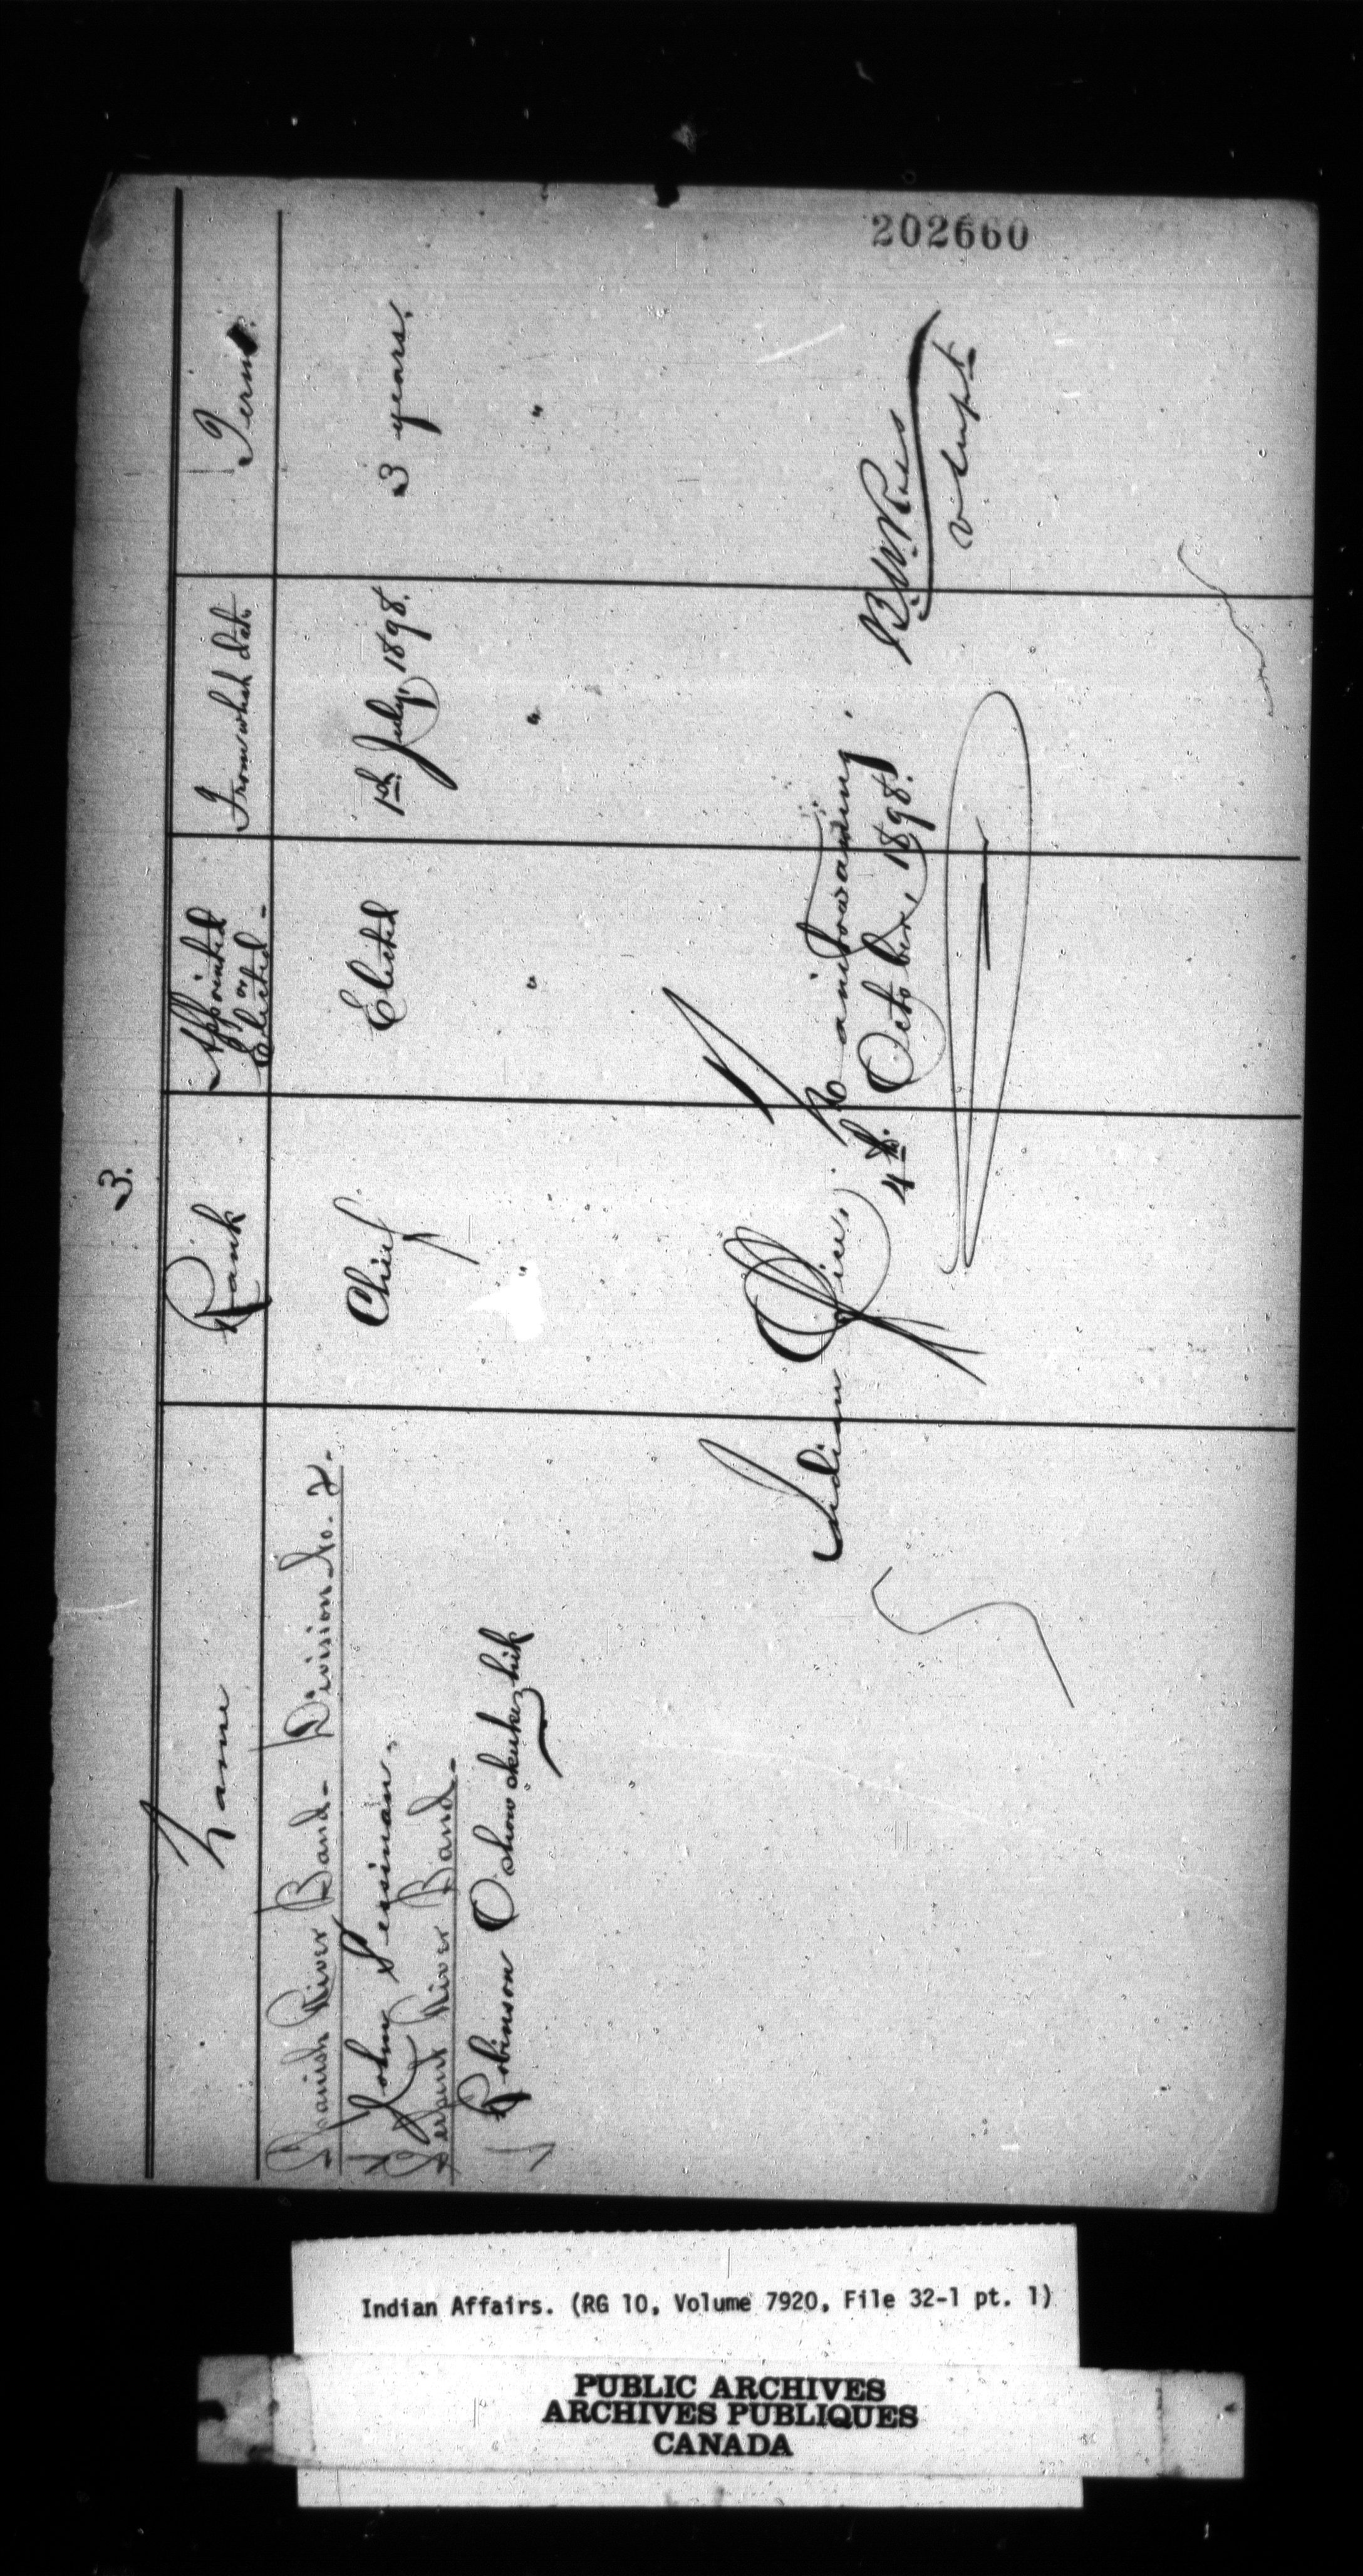 202660
3.
Name Rank Appointed or Elected - From what date Term
Spanish River Band - Division No. 2 -
John Sensinan - Chief Elected 1st July, 1898. 3 years.
Serpent River Band -
Robinson " " " "
Indian Office,
Manitowaning,
4th October, 1898.
B. W. Ross
V. Supt
Indian Affairs. (RG 10, Volume 7920, File 32-1 pt. 1)
PUBLIC ARCHIVES
ARCHIVES PUBLIQUES
CANADA